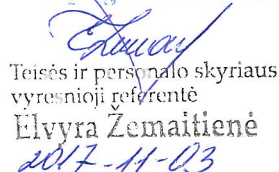 Teisės ir personalo skyriaus
vyresnioji referentė
Elvyra Žemaitienė
2017-11-03